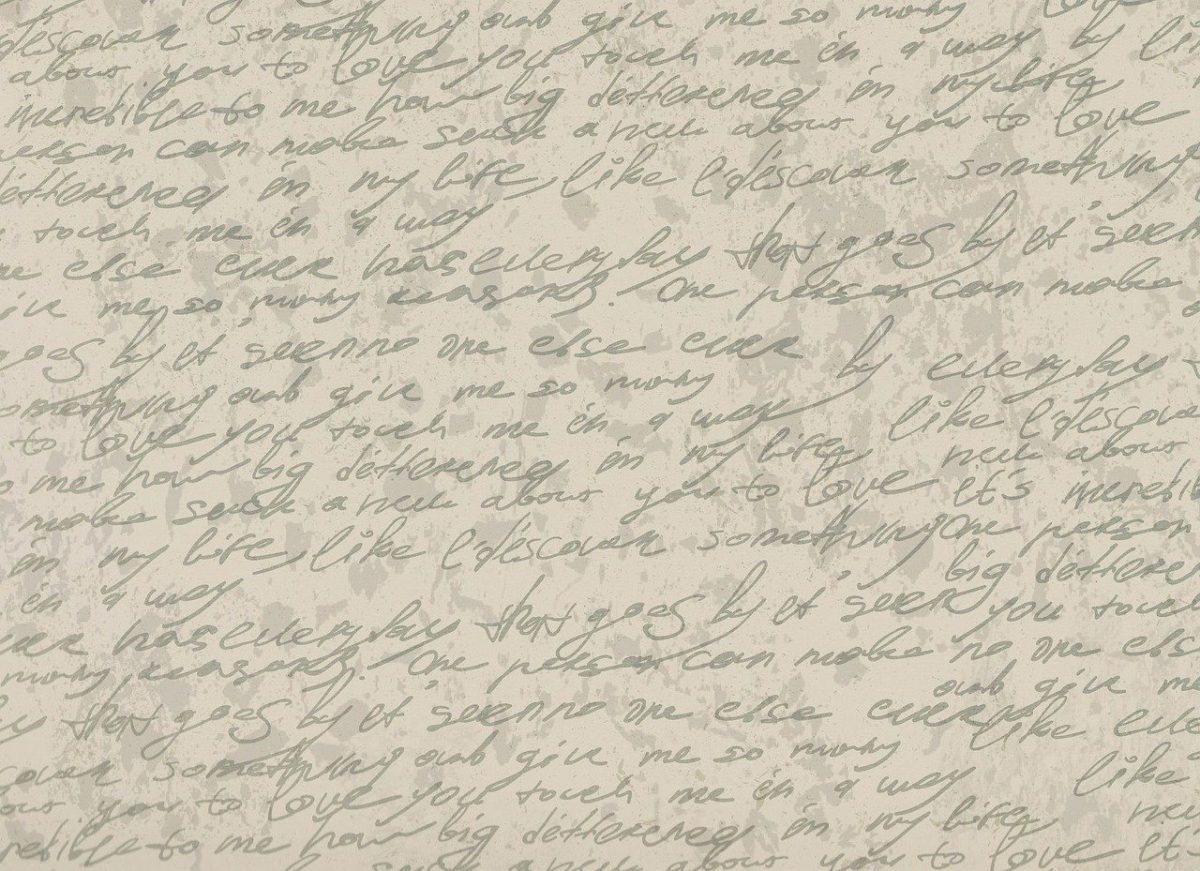 something and give me so many love
discover something me in a way by li
about you to love you touch
incretible to me how big defferenes in my life
person can make such a new about you to love
defferenes in my life, like I'discover something
touch me in a way
me else ever has everyday that goes by it seen
give me so many reasons. One person can make
goes by it seen no one else ever by everyday
something and give me so many
to love you touch me in a way like I'discover
to me how big defferenes in my life new about
make such a new about you to love it's incretib
in my life, like I'discover something One person
in a way big defferen
ever has everyday that goes by it seen you touch
many reasons. One person can make no one els
and give me
that goes by it seen no one else ever like eve
discover something and give me so many
about you to love you touch me in a way like
incretible to me how big defferenes in my life new
such a new about you to love it